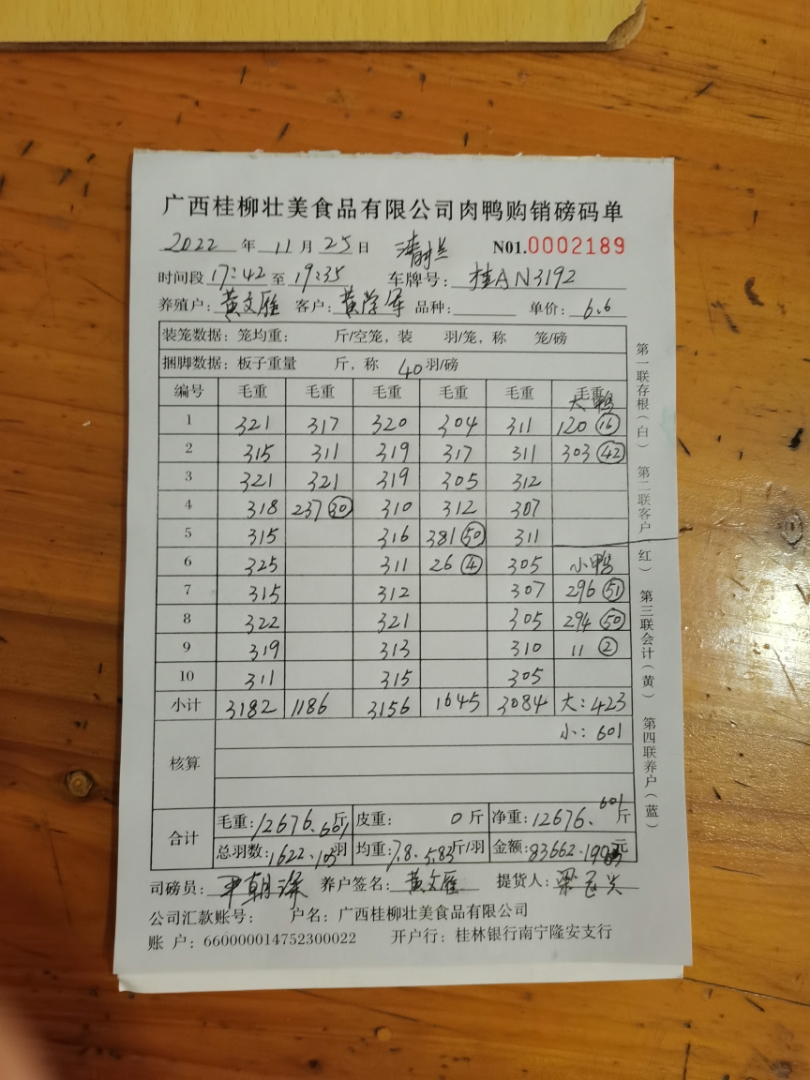 广西桂柳壮美食品有限公司肉鸭购销磅码单
2022 年 11 月 25 日 N01.0002189
时间段 17:42 至 19:35 车牌号: 桂AN3192
养殖户: 黄文雁 客户: 黄学军 品种: 单价: 6.6
装笼数据: 笼均重: 斤/空笼, 装 羽/笼, 称 笼/磅
捆脚数据: 板子重量 斤, 称 40 羽/磅
编号 毛重 毛重 毛重 毛重 毛重 毛重
大鸭
1 321 317 320 304 311 120 (16)
2 315 311 319 317 311 303 (42)
3 321 321 319 305 312
4 318 237 (30) 310 312 307
5 315 316 381 (50) 311
6 325 311 26 (4) 305 小鸭
7 315 312 307 296 (51)
8 322 321 305 294 (50)
9 319 313 310 11 (2)
10 311 315 305
小计 3182 1186 3156 1645 3084 大: 423
核算 小: 601
合计 毛重: 12676.601 斤 皮重: 0 斤 净重: 12676.601 斤
总羽数: 1622.103 羽 均重: 7.8.5.83 斤/羽 金额: 83662. 元
司磅员: 养户签名: 黄文雁 提货人:
公司汇款账号: 户名: 广西桂柳壮美食品有限公司
账 户: 660000014752300022 开户行: 桂林银行南宁隆安支行
第一联存根(白) 第二联客户(红) 第三联会计(黄) 第四联养户(蓝)